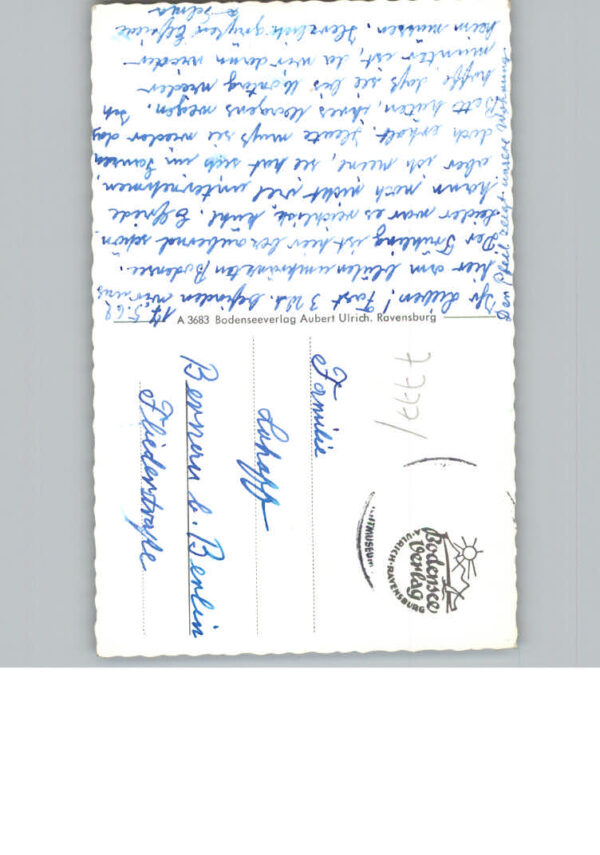 17.5.62
Ihr Lieben! Fast 3 befinden wir uns
hier am blütenumkränzten Bodensee.
Der Frühling ist hier bezaubernd schön
Leider war es reichlich kühl. Elfriede
kann noch nicht viel unternehmen,
aber ich meine, sie hat sich im Ganzen
doch erholt. Heute muß sie wieder das
Bett hüten, ihres Magens wegen. Ich
hoffe daß sie bis Montag wieder
munter ist, da wir dann wieder
heim müssen. Herzlich grüßen Elfriede
+ Selma
Den Pfeil zeigt unsere Wohnung.
A 3683 Bodenseeverlag Aubert Ulrich. Ravensburg
Familie
Bernau b. Berlin
Fliederstraße
Bodensee
Verlag
A·ULRICH·RAVENSBURG